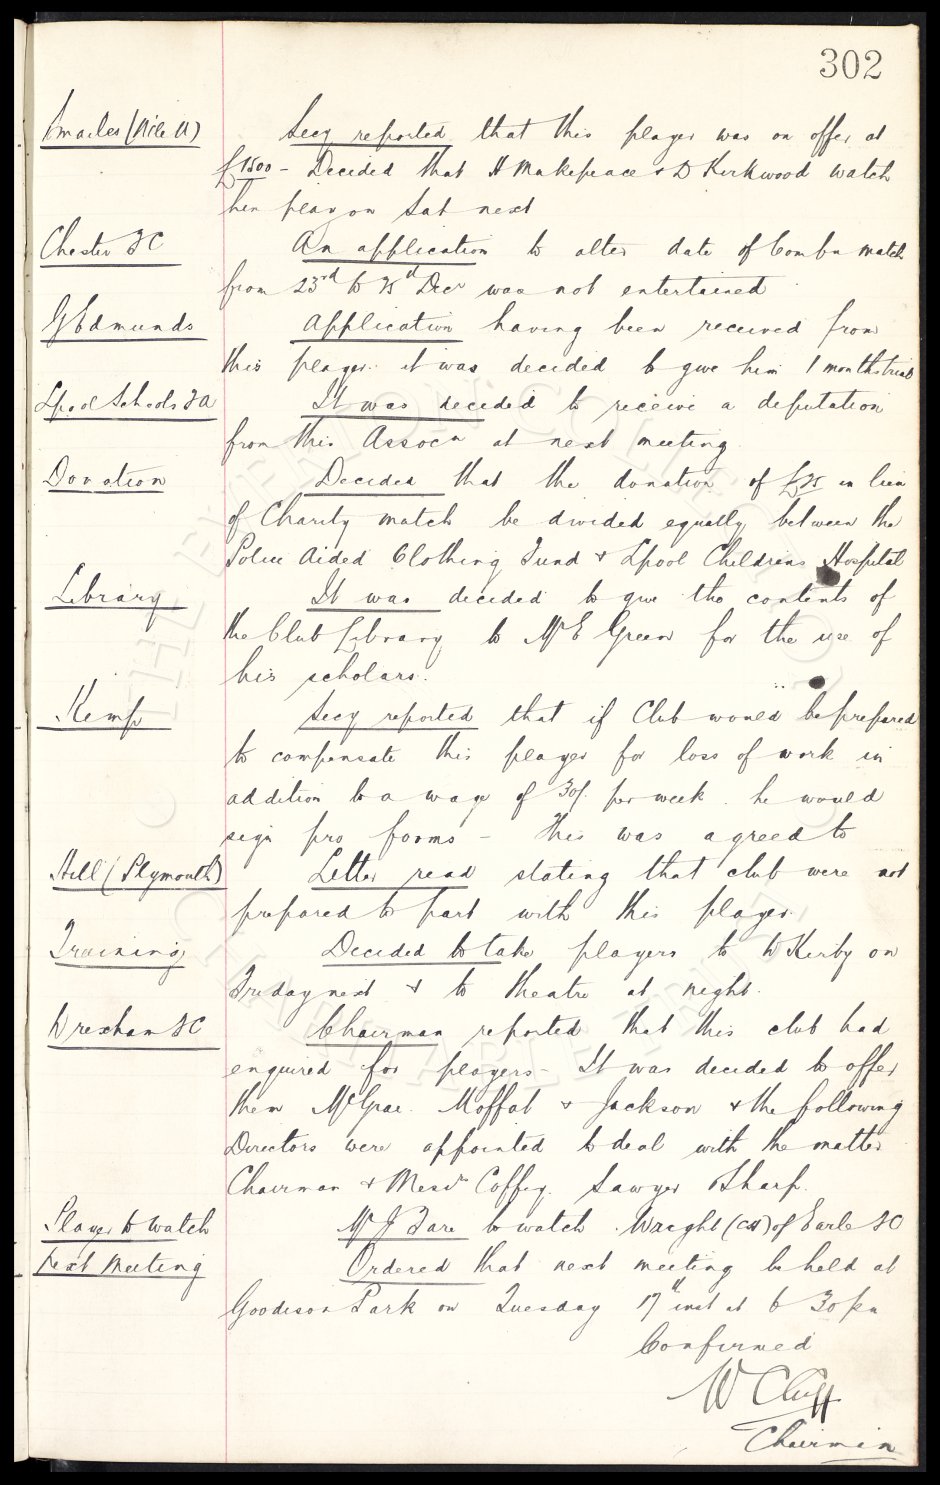 302
Smailes (Nile U) Secy reported that this player was on offer at
£1500 - Decided that H Makepeace & D Kirkwood watch
him play on Sat next
Chester FC An application to alter date of Combn match
from 23rd to 25th Decr was not entertained
G Edmunds Application having been received from
this player it was decided to give him 1 months trial
Lpool Schools FA It was decided to receive a deputation
from this Assocn at next meeting
Donation Decided that the donation of £25 in lieu
of Charity match be divided equally between the
Police Aided Clothing Fund & Lpool Childrens Hospital
Library It was decided to give the contents of
the Club Library to Mr E Green for the use of
his scholars.
Kemp Secy reported that if Club would be prepared
to compensate this player for loss of work in
addition to a wage of 30/- per week he would
sign pro forms - This was agreed to
Hill (Plymouth) Letter read stating that club were not
prepared to part with this player.
Training Decided to take players to W Kirby on
Friday next & to theatre at night.
Wrexham FC Chairman reported that this club had
enquired for players - It was decided to offer
them McGrae. Moffat & Jackson & the following
Directors were appointed to deal with the matter
Chairman & Messrs Coffey. Sawyer & Sharp.
Player to watch Mr J Fare to watch Wright (CH) of Earle FC
Next Meeting Ordered that next meeting be held at
Goodison Park on Tuesday 17th inst at 6 30 pm
Confirmed
W C Cuff
Chairman
THE EVERTON COLLECTION
CHARITABLE TRUST